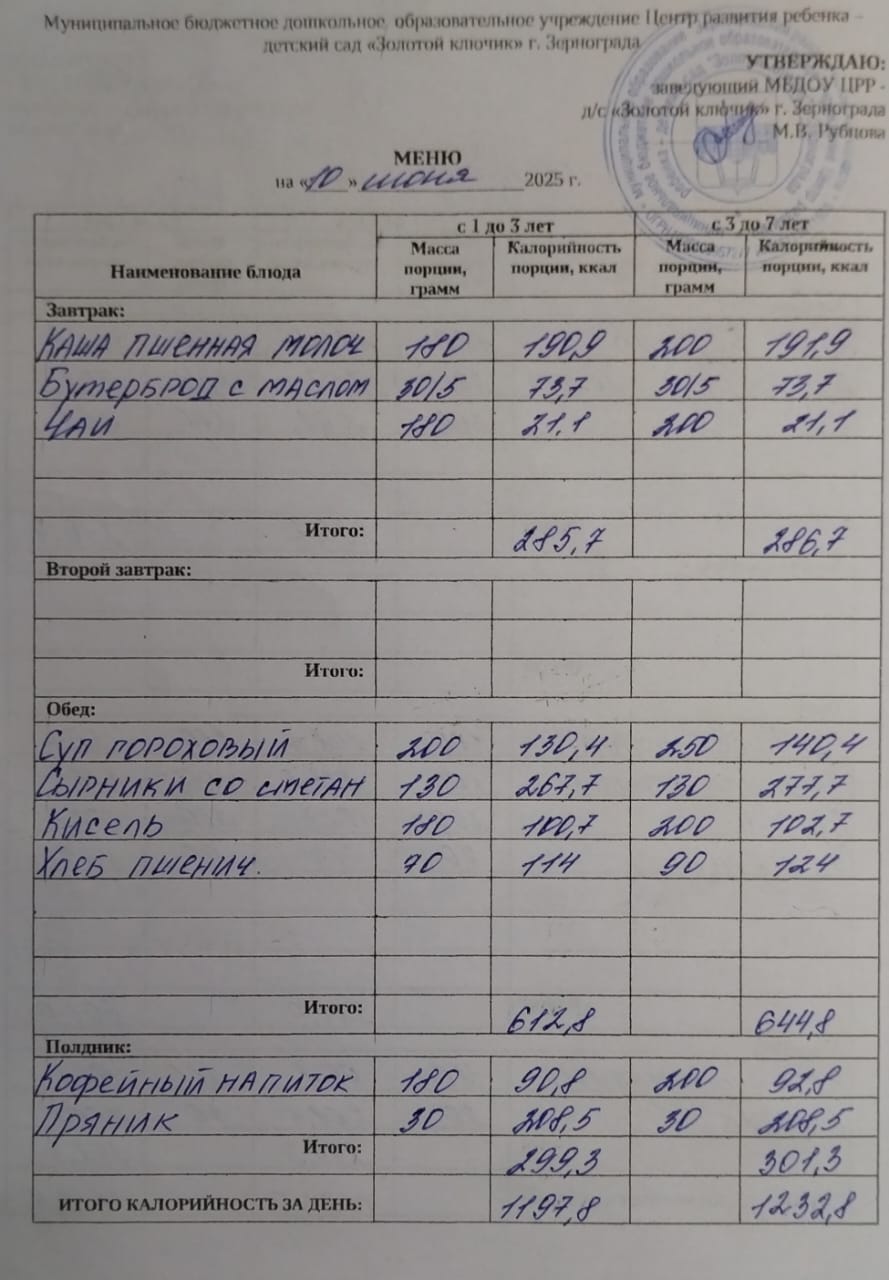 Муниципальное бюджетное дошкольное образовательное учреждение Центр развития ребенка –
детский сад «Золотой ключик» г. Зернограда
УТВЕРЖДАЮ:
заведующий МБДОУ ЦРР -
д/с «Золотой ключик» г. Зернограда
М.В. Рубцова
МЕНЮ
на «10» июня 2025 г.
Наименование блюда с 1 до 3 лет с 3 до 7 лет
Масса порции, грамм Калорийность порции, ккал Масса порции, грамм Калорийность порции, ккал
Завтрак:
Каша пшенная молоч 180 190,9 200 191,9
Бутерброд с маслом 30/5 73,7 30/5 73,7
Чай 180 21,1 200 21,1
Итого: 285,7 286,7
Второй завтрак:
Итого:
Обед:
Суп гороховый 200 130,4 250 140,4
Сырники со сметан 130 267,7 130 277,7
Кисель 180 100,7 200 102,7
Хлеб пшенич. 70 114 90 124
Итого: 612,8 644,8
Полдник:
Кофейный напиток 180 90,8 200 92,8
Пряник 30 208,5 30 208,5
Итого: 299,3 301,3
ИТОГО КАЛОРИЙНОСТЬ ЗА ДЕНЬ: 1197,8 1232,8